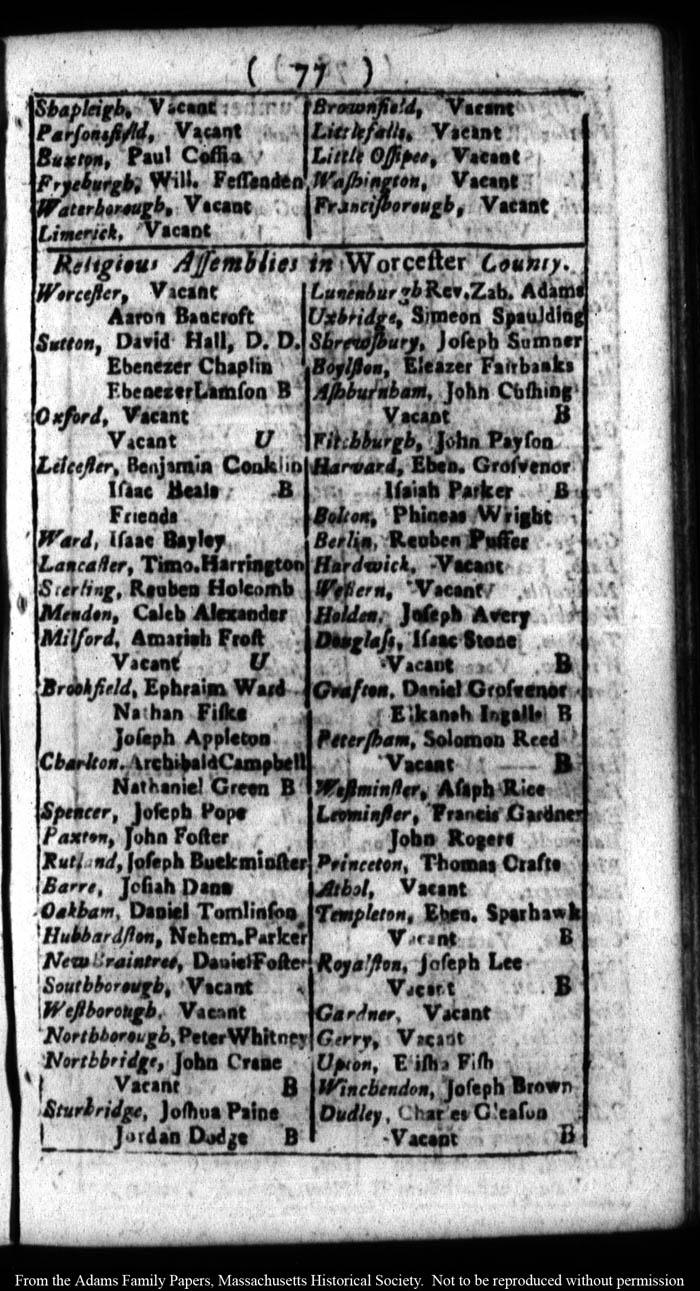 ( 77 )
Shapleigh, Vacant
Parsonsfield, Vacant
Buxton, Paul Coffin
Fryeburgh, Will. Feſſenden
Waterborough, Vacant
Limerick, Vacant
Brownfield, Vacant
Littlefalls, Vacant
Little Oſſipee, Vacant
Waſhington, Vacant
Franciſborough, Vacant
Religious Aſſemblies in Worceſter County.
Worceſter, Vacant
Aaron Bancroft
Sutton, David Hall, D. D.
Ebenezer Chaplin
Ebenezer Lamſon B
Oxford, Vacant
Vacant U
Leiceſter, Benjamin Conklin
Iſaac Beals B
Friends
Ward, Iſaac Bayley
Lancaſter, Timo. Harrington
Sterling, Reuben Holcomb
Mendon, Caleb Alexander
Milford, Amariah Froſt
Vacant U
Brookfield, Ephraim Ward
Nathan Fiſke
Joſeph Appleton
Charlton. Archibald Campbell
Nathaniel Green B
Spencer, Joſeph Pope
Paxton, John Foſter
Rutland, Joſeph Buckminſter
Barre, Joſiah Dana
Oakham, Daniel Tomlinſon
Hubbardſton, Nehem. Parker
New Braintree, Daniel Foſter
Southborough, Vacant
Weſtborough, Vacant
Northborough, Peter Whitney
Northbridge, John Crane
Vacant B
Sturbridge, Joſhua Paine
Jordan Dodge B
Lunenburgh Rev. Zab. Adams
Uxbridge, Simeon Spaulding
Shrewſbury, Joſeph Sumner
Boylſton, Eleazer Fairbanks
Aſhburnham, John Cuſhing
Vacant B
Fitchburgh, John Payſon
Harvard, Eben. Groſvenor
Iſaiah Parker B
Bolton, Phineas Wright
Berlin, Reuben Puffer
Hardwick, Vacant
Weſtern, Vacant
Holden, Joſeph Avery
Douglaſs, Iſaac Stone
Vacant B
Grafton, Daniel Groſvenor
Elkanah Ingalls B
Peterſham, Solomon Reed
Vacant B
Weſtminſter, Aſaph Rice
Leominſter, Francis Gardner
John Rogers
Princeton, Thomas Crafts
Athol, Vacant
Templeton, Eben. Sparhawk
Vacant B
Royalſton, Joſeph Lee
Vacant B
Gardner, Vacant
Gerry, Vacant
Upton, Eliſha Fiſh
Winchendon, Joſeph Brown
Dudley, Charles Gleaſon
Vacant B
From the Adams Family Papers, Massachusetts Historical Society. Not to be reproduced without permission